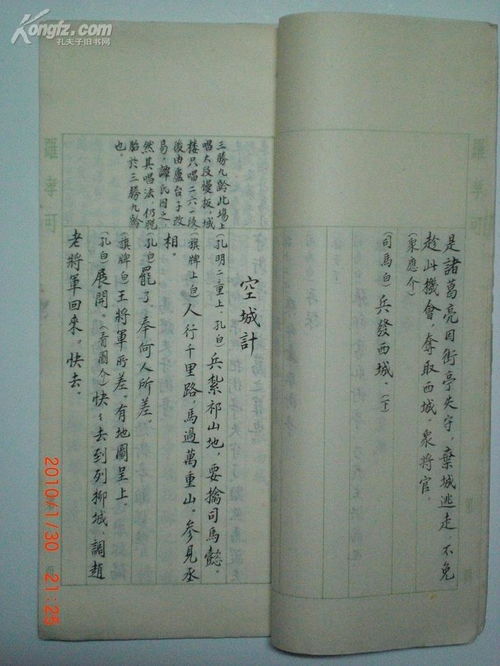 Kongfz.com
孔夫子旧书网
羅孝可
是諸葛亮因街亭失守，棄城逃走，不免
趁此機會，奪取西城，衆將官。
（衆應介）
（司馬白）兵發西城。（下）
空城計
三勝九齡此場上
唱大段慢板，城
樓只唱二六一段
後由盧台子改
易，譚氏因之，
然其唱法仍脫
胎於三勝九齡
也。
（孔明二童上，孔白）兵紮祁山地，要擒司馬懿。
（旗牌上白）人行千里路，馬過萬重山。參見丞
相。
（孔白）罷了，奉何人所差。
（旗牌白）王將軍所差，有地圖呈上。
（孔白）展開。（看圖介）快快去到列柳城，調趙
老將軍回來。快去。
羅孝可
2010/1/30 21:25